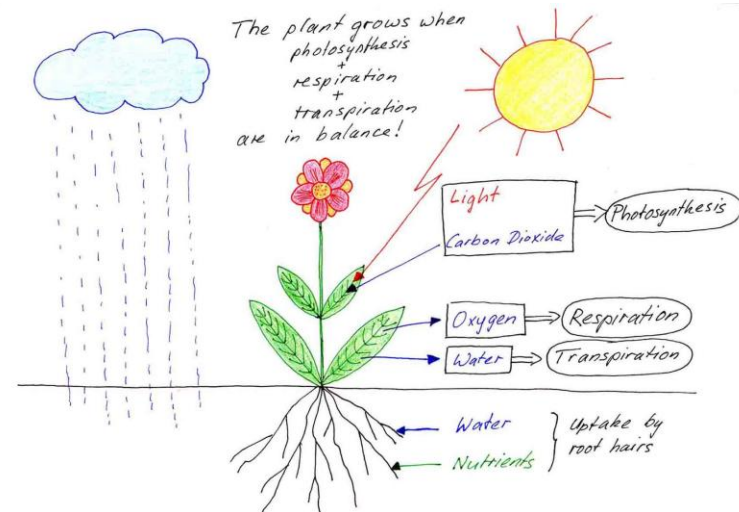 The plant grows when
photosynthesis
+
respiration
+
transpiration
are in balance!
Light
Carbon Dioxida
Photosynthesis
Oxygen
Respiration
Water
Transpiration
Water
Nutrients
Uptake by
root hairs